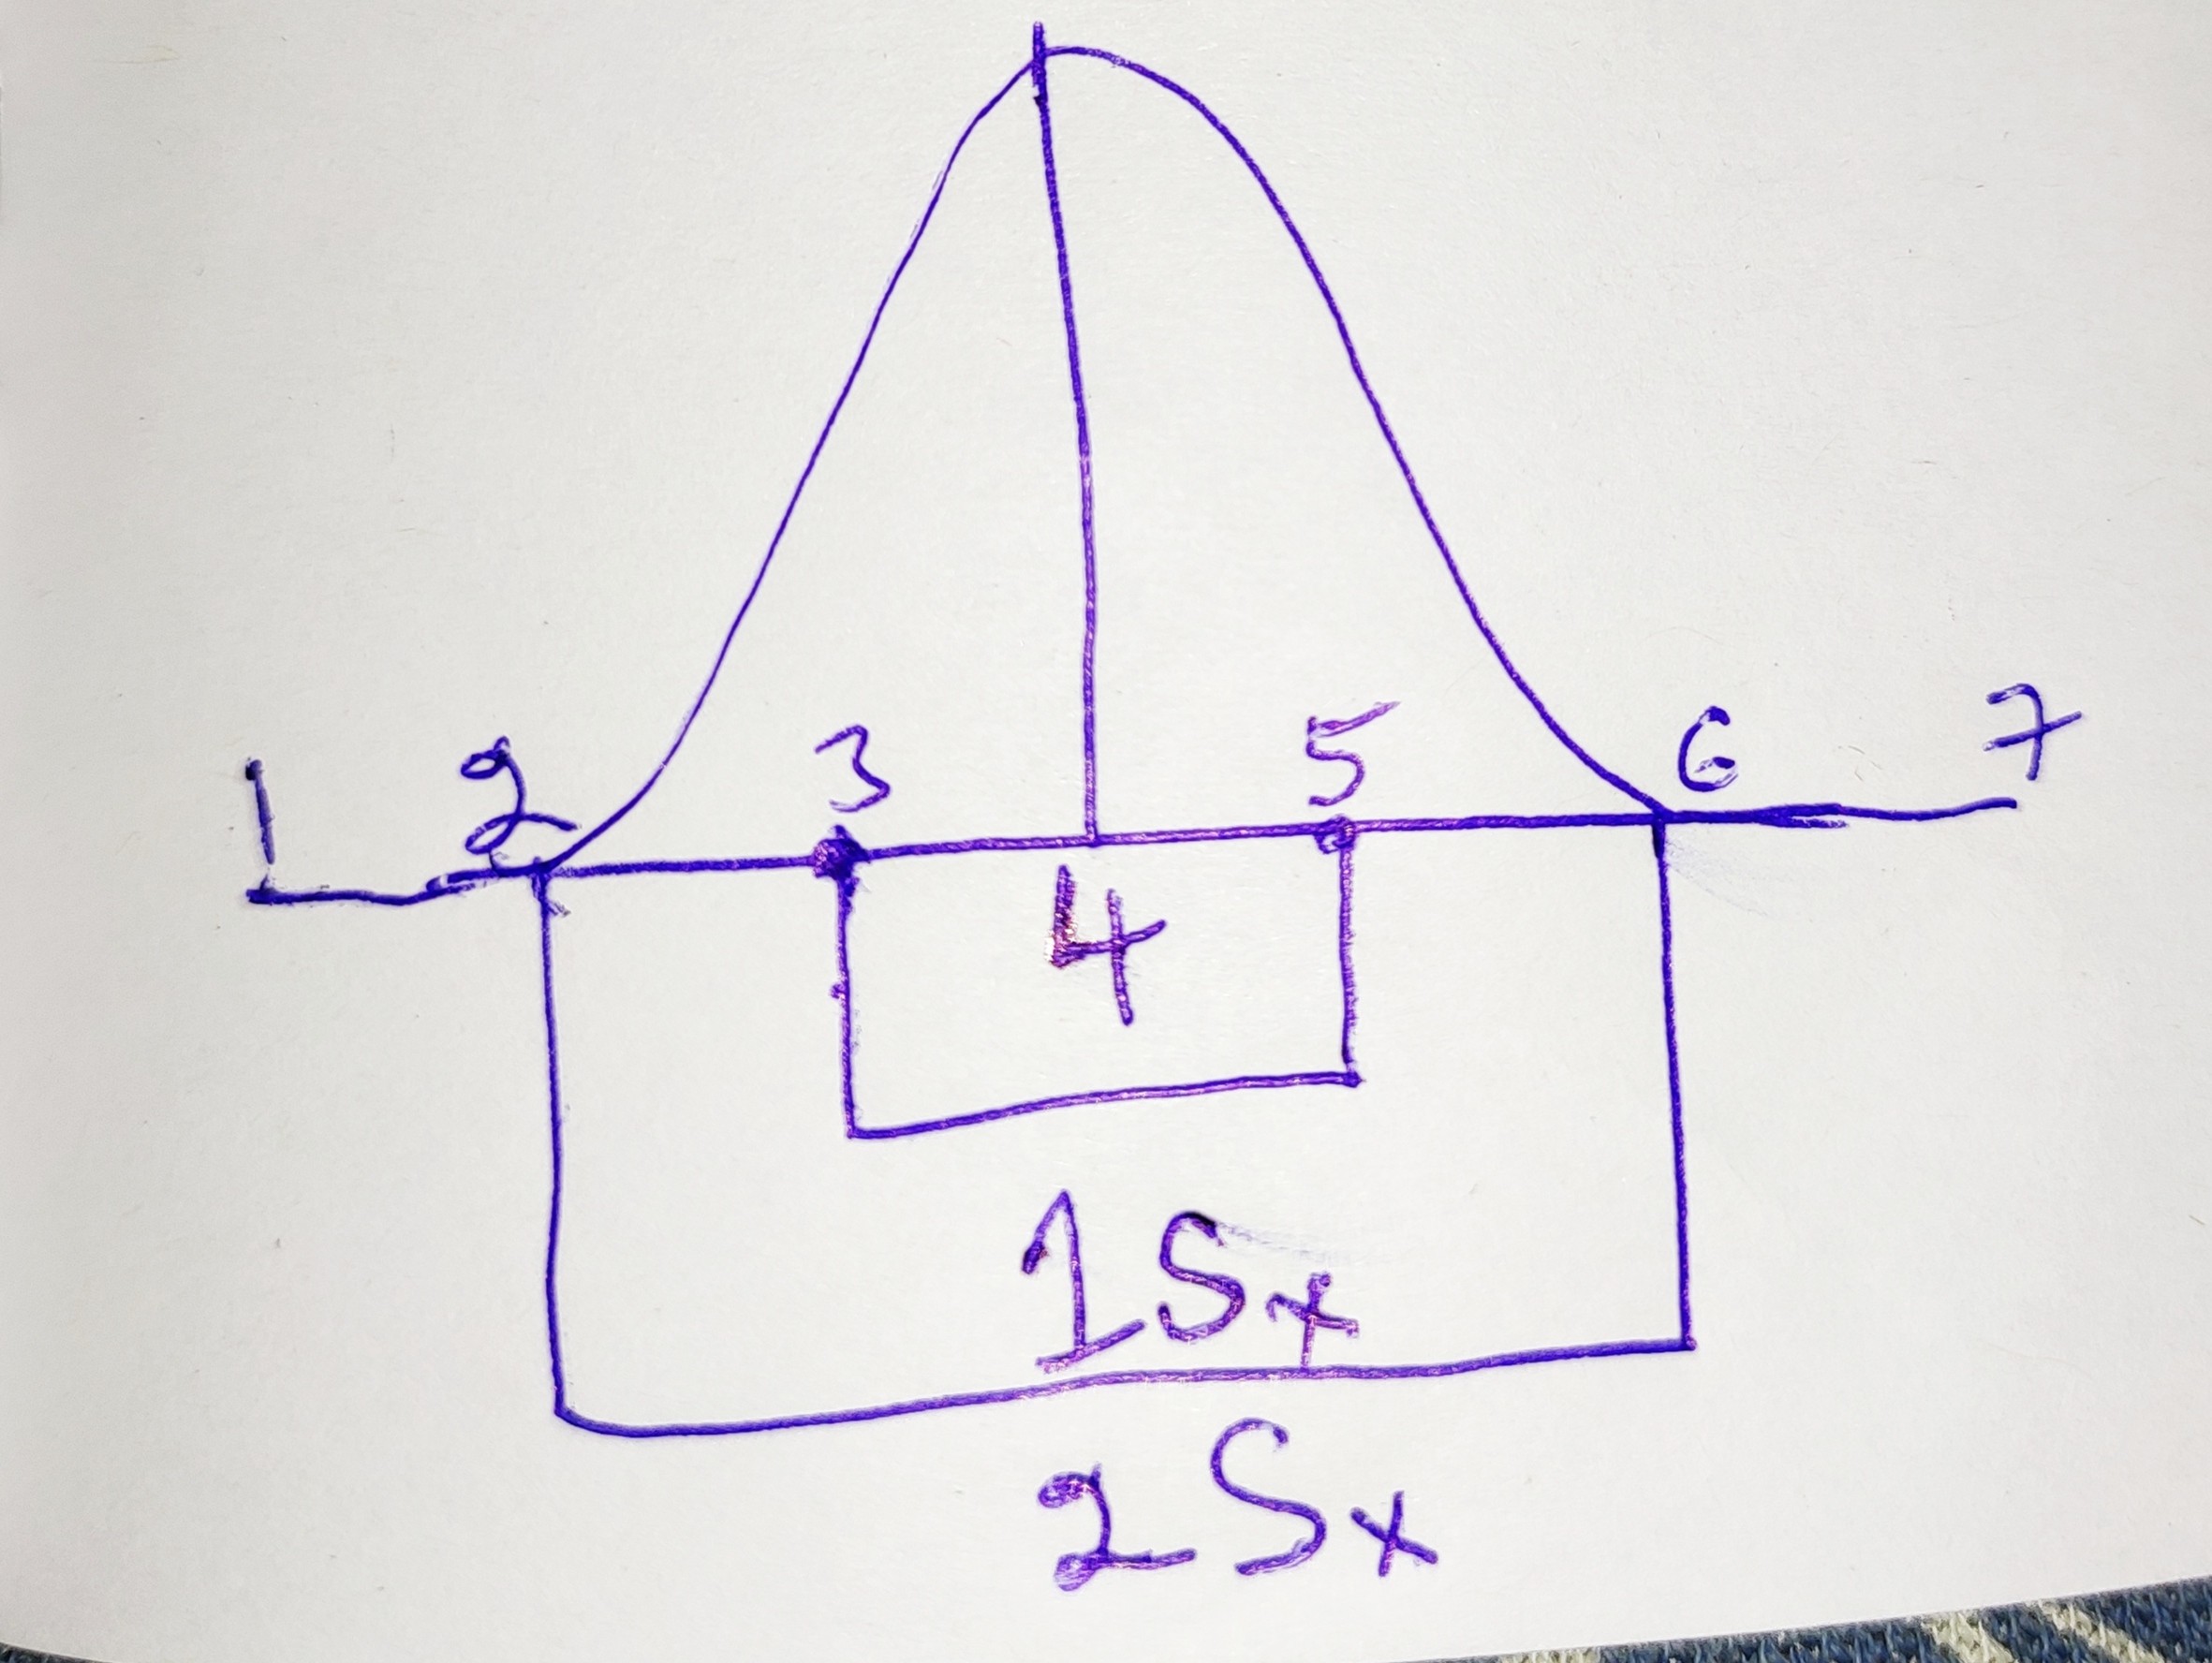 1 2 3 5 6 7
4
1 Sx
2 Sx